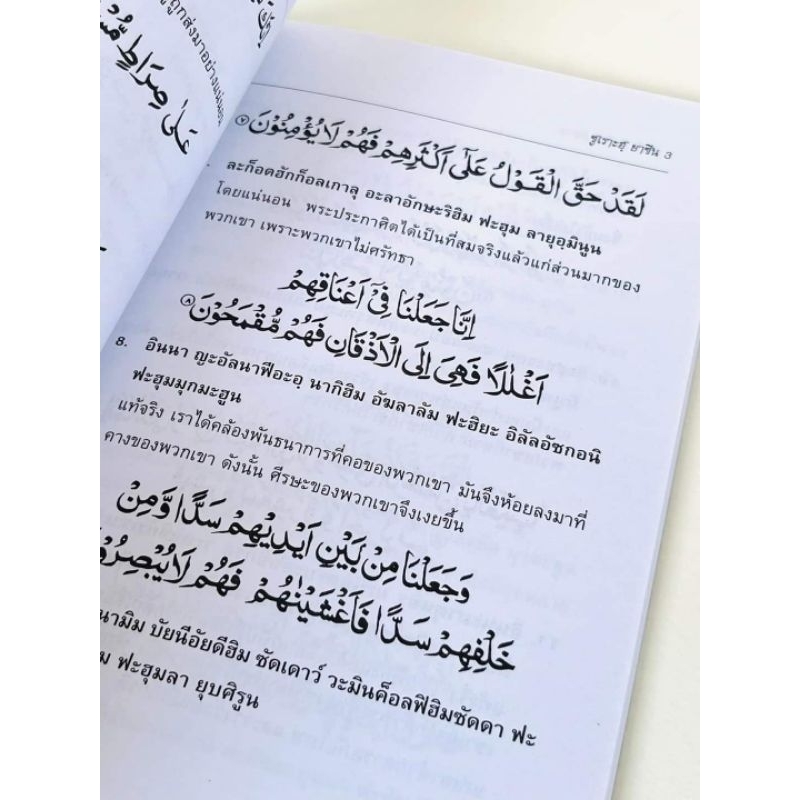 ถูกส่งมาอย่างแน่นอน
عَلٰى صِرَاطٍ
ซูเราะฮฺ ยาซีน 3
لَقَدْ حَقَّ الْقَوْلُ عَلٰٓى اَكْثَرِهِمْ فَهُمْ لَا يُؤْمِنُوْنَ ۷
ละก็อดฮักก็อลเกาลุ อะลาอักษะริฮิม ฟะฮุม ลายุอฺมินูน
โดยแน่นอน พระประกาศิตได้เป็นที่สมจริงแล้วแก่ส่วนมากของ
พวกเขา เพราะพวกเขาไม่ศรัทธา
اِنَّا جَعَلْنَا فِيْٓ اَعْنَاقِهِمْ
اَغْلٰلًا فَهِيَ اِلَى الْاَذْقَانِ فَهُمْ مُّقْمَحُوْنَ ۸
8. อินนา ญะอัลนาฟีอะอฺ นากิฮิม อัฆลาลัม ฟะฮิยะ อิลัลอัซกอนิ
ฟะฮุมมุกมะฮูน
แท้จริง เราได้คล้องพันธนาการที่คอของพวกเขา มันจึงห้อยลงมาที่
คางของพวกเขา ดังนั้น ศีรษะของพวกเขาจึงเงยขึ้น
وَجَعَلْنَا مِنْ بَيْنِ اَيْدِيْهِمْ سَدًّا وَّمِنْ
خَلْفِهِمْ سَدًّا فَاَغْشَيْنٰهُمْ فَهُمْ لَا
นามิม บัยนีอัยดีฮิม ซัดเดาว์ วะมินค็อลฟิฮิมซัดดา ฟะ
ม ฟะฮุมลา ยุบศิรูน